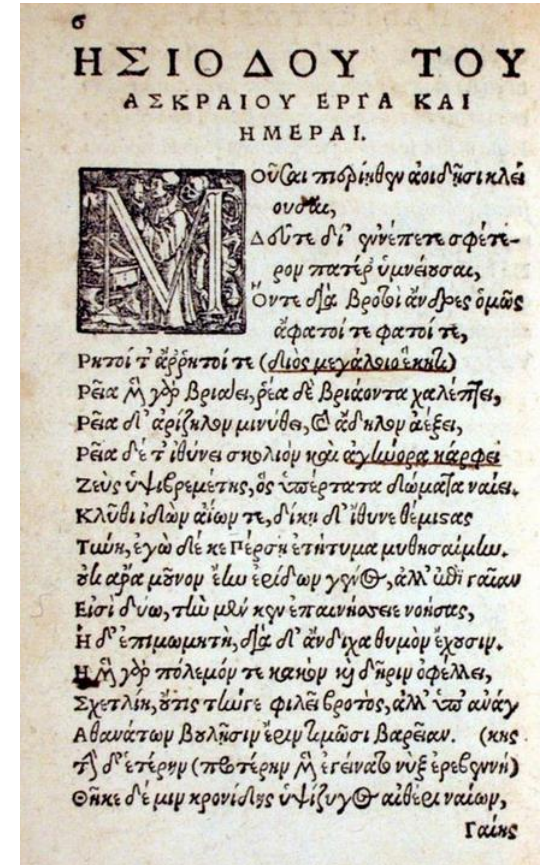 6
ΗΣΙΟΔΟΥ ΤΟΥ
ΑΣΚΡΑΙΟΥ ΕΡΓΑ ΚΑΙ
ΗΜΕΡΑΙ.
ΜΟῦσαι πιερίηθεν ἀοιδῇσι κλεί
ουσαι,
Δεῦτε δί' ἐννέπετε σφέτε-
ρον πατέρ' ὑμνείουσαι,
Ὅντε διὰ βροτοὶ ἄνδρες ὁμῶς
ἄφατοί τε φατοί τε,
Ρητοί τ' ἄῤῥητοί τε (διὸς μεγάλοιο ἕκητι)
Ρεῖα μὲν γὰρ βριάει, ῥέα δὲ βριάοντα χαλέπτει,
Ρεῖα δ' ἀρίζηλον μινύθει, καὶ ἄδηλον ἀέξει,
Ρεῖα δέ τ' ἰθύνει σκολιὸν καὶ ἀγήνορα κάρφει
Ζεὺς ὑψιβρεμέτης, ὃς ὑπέρτατα δώματα ναίει.
Κλῦθι ἰδὼν ἀίων τε, δίκῃ δ' ἴθυνε θέμιστας
Τύνη, ἐγὼ δέ κε Πέρσῃ ἐτήτυμα μυθησαίμην.
οὐκ ἄρα μοῦνον ἔην ἐρίδων γένος, ἀλλ' ἐπὶ γαῖαν
Εἰσὶ δύω, τὴν μέν κεν ἐπαινήσειε νοήσας,
Η δ' ἐπιμωμητὴ, διὰ δ' ἄνδιχα θυμὸν ἔχουσιν.
Η μὲν γὰρ πόλεμόν τε κακὸν καὶ δῆριν ὀφέλλει,
Σχετλίη, οὔτις τήνγε φιλεῖ βροτὸς, ἀλλ' ὑπ' ἀνάγ
Αθανάτων βουλῇσιν ἔριν τιμῶσι βαρεῖαν. (κης
τὴν δ' ἑτέρην (προτέρην μὲν ἐγείνατο νὺξ ἐρεβεννή)
Θῆκε δέ μιν κρονίδης ὑψίζυγος αἰθέρι ναίων,
Γαίης